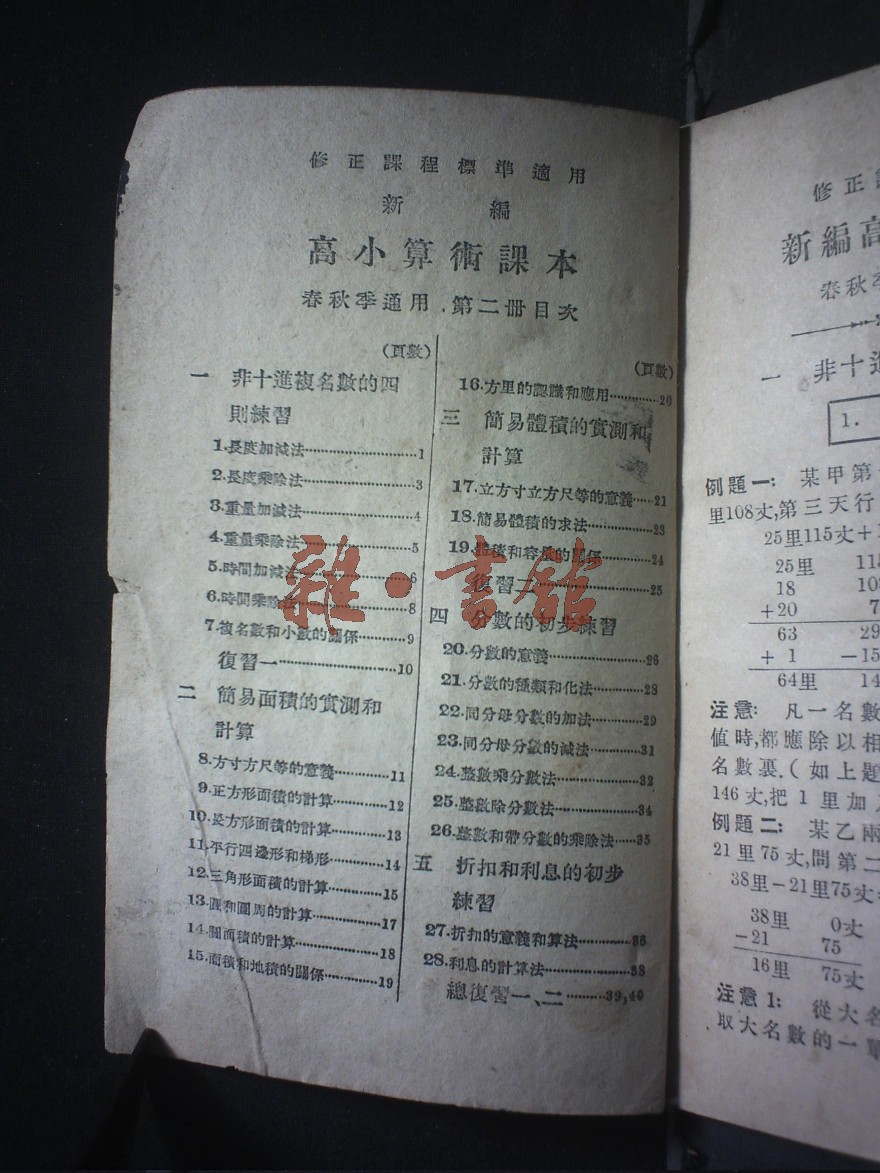 修正課程標準適用
新編
高小算術課本
春秋季通用.第二冊目次
(頁數)
一 非十進複名數的四
則練習
1.長度加減法…………1
2.長度乘除法…………3
3.重量加減法…………4
4.重量乘除法…………5
5.時間加減法…………6
6.時間乘除法…………8
7.複名數和小數的關係…………9
復習一…………10
二 簡易面積的實測和
計算
8.方寸方尺等的意義…………11
9.正方形面積的計算…………12
10.長方形面積的計算…………13
11.平行四邊形和梯形…………14
12.三角形面積的計算…………15
13.圓和圓周的計算…………17
14.圓面積的計算…………18
15.面積和地積的關係…………19
(頁數)
16.方里的認識和應用…………20
三 簡易體積的實測和
計算
17.立方寸立方尺等的意義……21
18.簡易體積的求法…………23
19.體積和容量的關係…………24
復習二…………25
四 分數的初步練習
20.分數的意義…………26
21.分數的種類和化法…………28
22.同分母分數的加法…………29
23.同分母分數的減法…………31
24.整數乘分數法…………32
25.整數除分數法…………34
26.整數和帶分數的乘除法……35
五 折扣和利息的初步
練習
27.折扣的意義和算法…………36
28.利息的計算法…………38
總復習一、二………39,40
雜·書館
修正
新編高
春秋季
一 非十進
1.
例題一: 某甲第
里108丈,第三天行
25里115丈+1
25里 11
18 10
+20 7
63 29
+ 1 −15
64里 14
注意: 凡一名數
值時,都應除以相
名數裏.(如上題
146丈,把1里加入
例題二: 某乙兩
21里75丈,問第二
38里−21里75丈
38里 0丈
−21 75
16里 75丈
注意1: 從大名
取大名數的一單